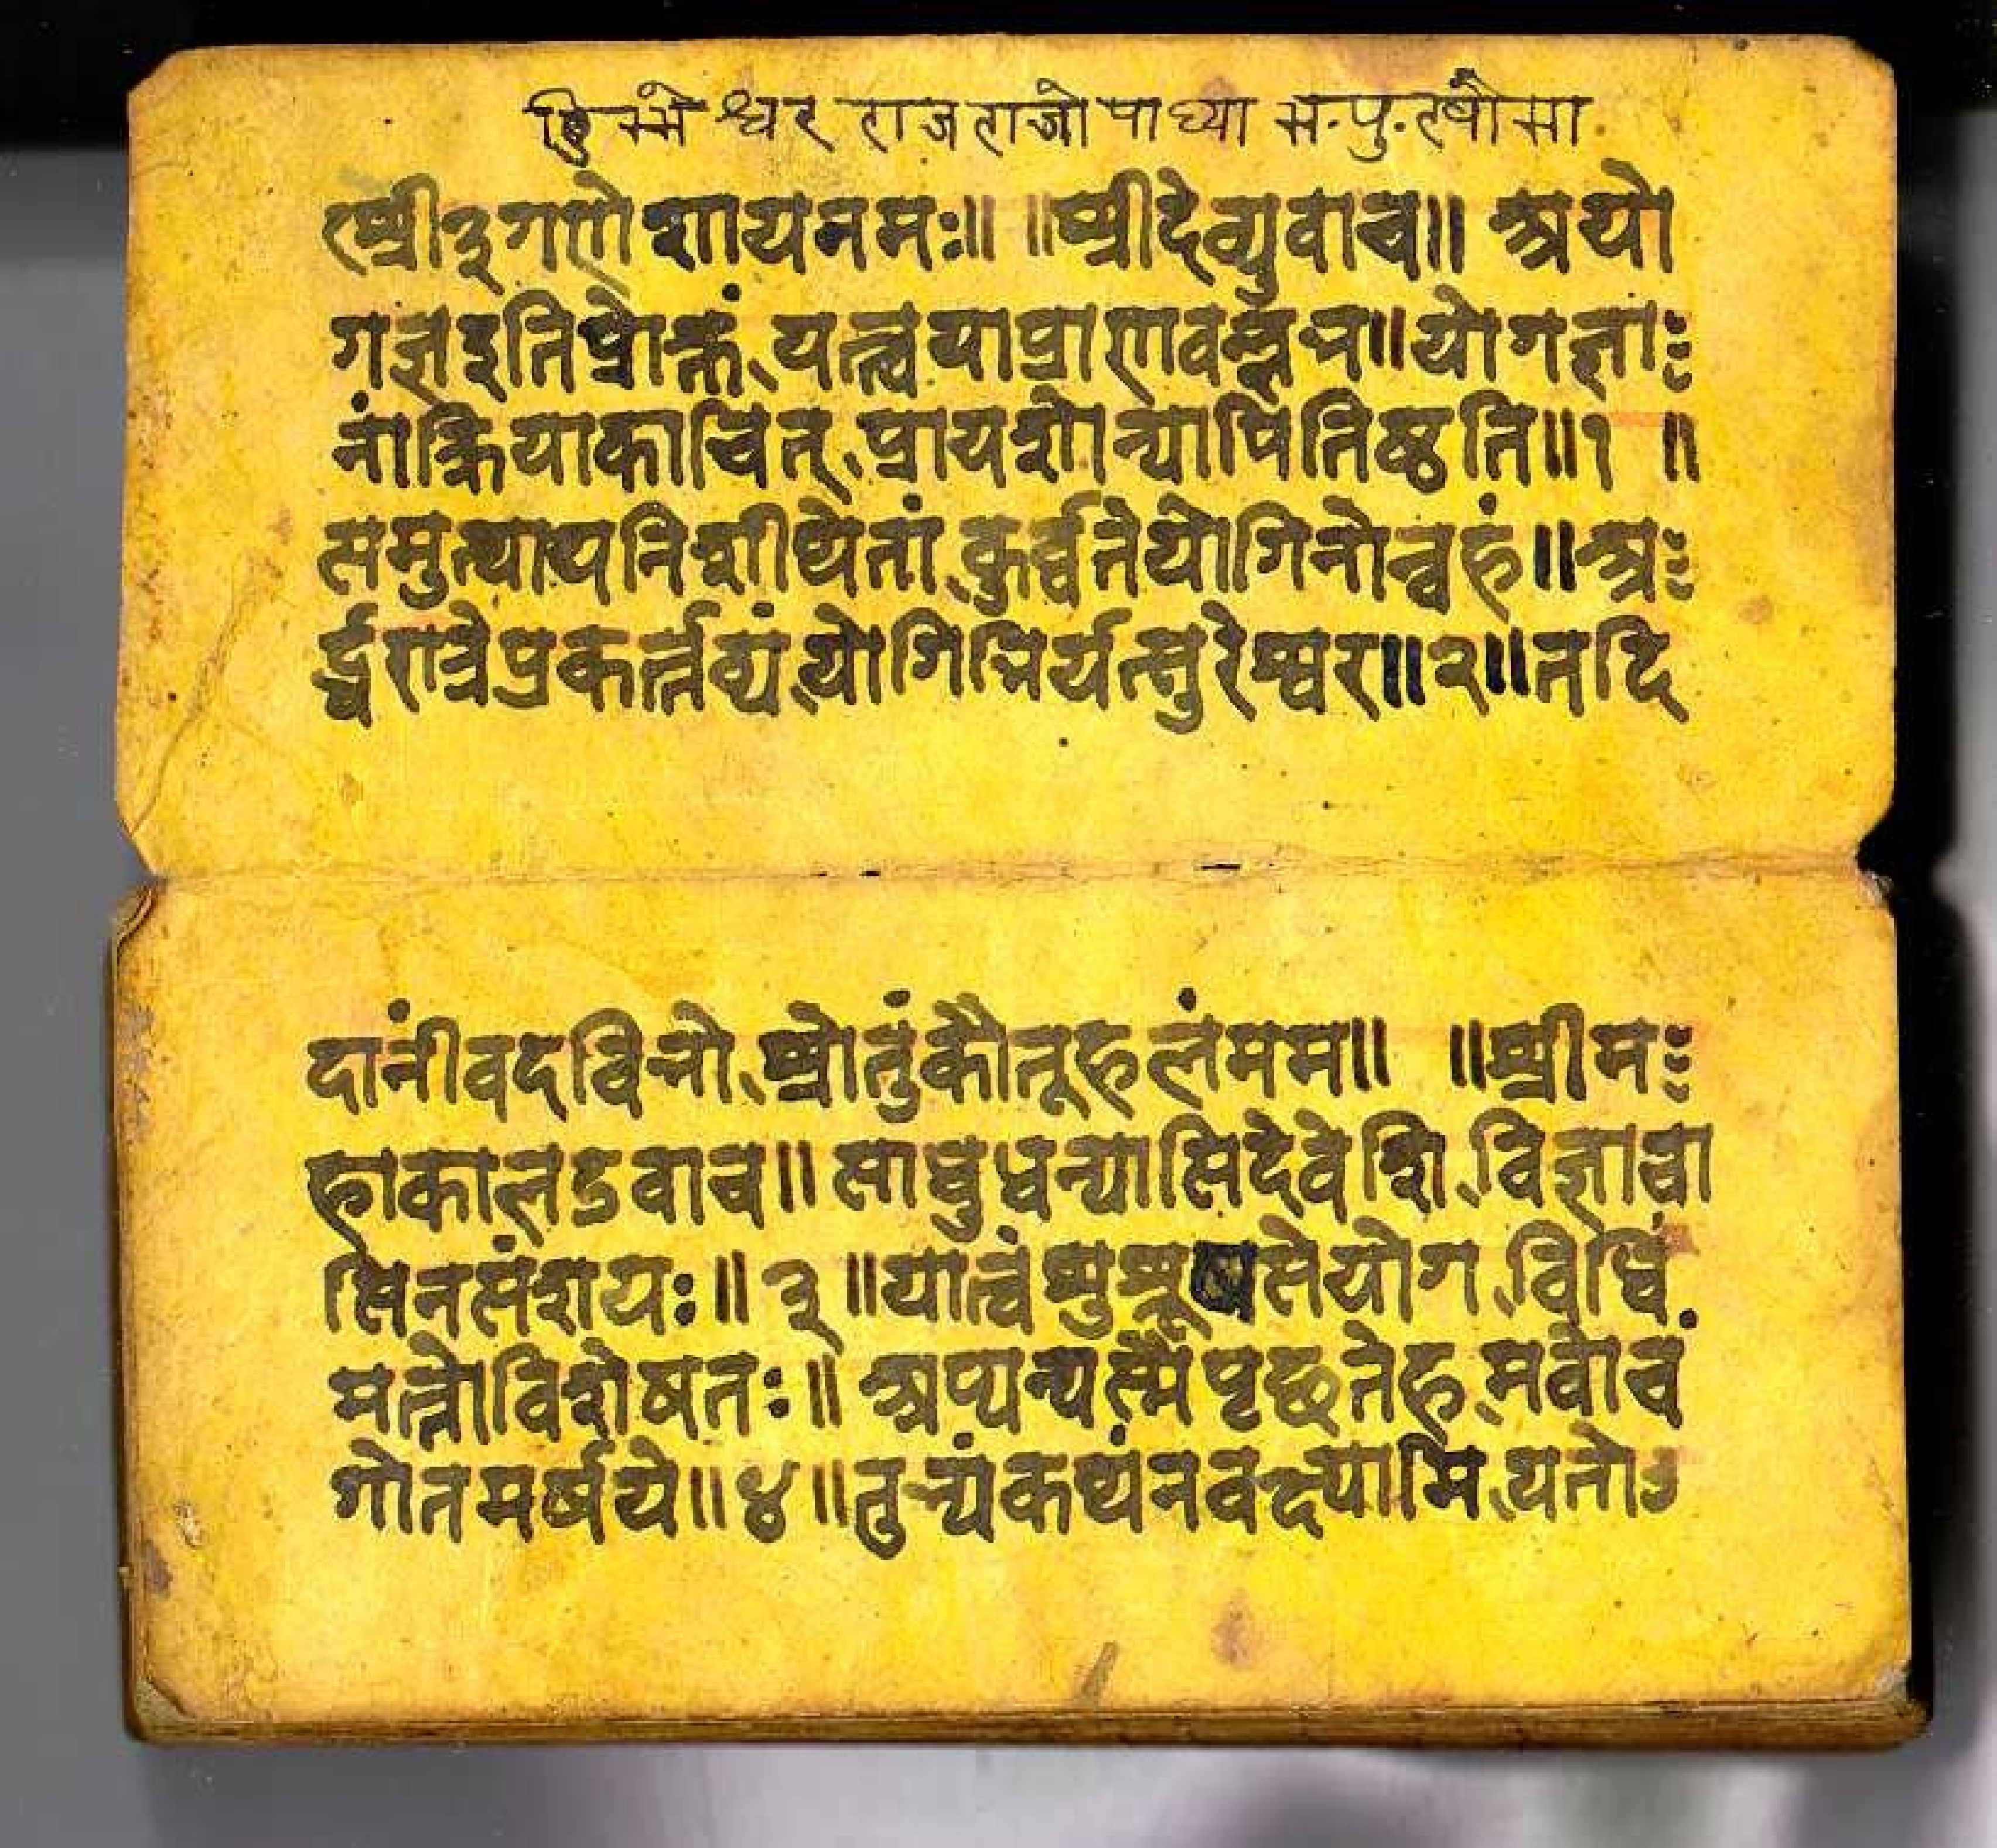 श्वर राजराजोपाध्या भ.पु.
श्री३गणेशायनमः॥ ॥श्रीदेव्युवाच॥ अयो
गज्ञइतिप्रोक्तं यत्त्वयाप्राणवल्लभ॥योगज्ञाः
नांक्रियाकाचित् प्रायशोन्यापितिष्ठति॥१॥
समुत्थायनिशीथेतां कुर्व्वतेयोगिनोन्वहं॥अः
र्द्धरात्रेप्रकर्त्तव्यं योगिभिर्यत्सुरेश्वर॥२॥तदि
दानींवदविभो श्रोतुंकौतूहलंमम॥ ॥श्रीमः
हाकालउवाच॥साधुधन्यासिदेवेशि विज्ञावा
सिनसंशयः॥३॥यात्वंशुश्रूषसेयोग विधिं
मत्तोविशेषतः॥अप्यन्यस्मैपृछतेह मवोचं
गोतमर्षये॥४॥तुभ्यंकथंनवक्ष्यामि यतोऽ